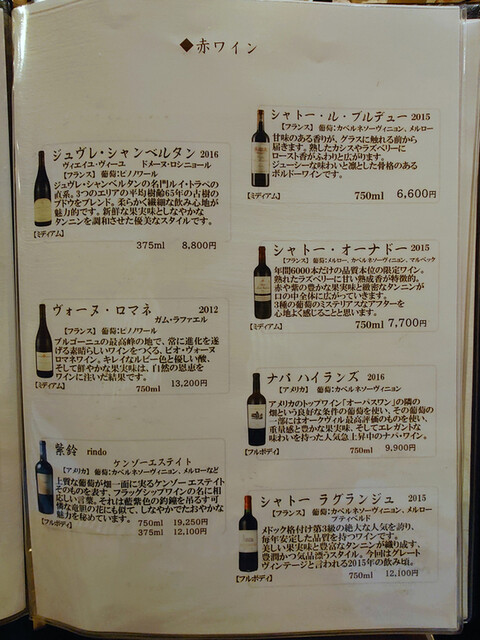 ◆赤ワイン
ジュヴレ・シャンベルタン 2016
ヴィエイユ・ヴィーユ ドメーヌ・ロシニョール
【フランス】 葡萄:ピノワール
ジュヴレ・シャンベルタンの名門ルイ・トラペの
直系。3つのエリアの平均樹齢65年の古樹の
ブドウをブレンド。柔らかく繊細な飲み心地が
魅力的です。新鮮な果実味としなやかな
タンニンを調和させた優美なスタイルです。
【ミディアム】
375ml 8,800円
ヴォーヌ・ロマネ 2012
ガム・ラファエル
【フランス】 葡萄:ピノワール
ブルゴーニュの最高峰の地で、常に進化を遂
げる素晴らしいワインをつくる、ビオ・ヴォーヌ
ロマネワイン。キレイなルビー色と優しい酸、
そして鮮やかな果実味は、自然の恩恵を
ワインに注いだ結果です。
【ミディアム】
750ml 13,200円
紫鈴 rindo
ケンゾーエステイト
【アメリカ】 葡萄:カベルネソーヴィニョン、メルローなど
上質な葡萄が畑一面に実るケンゾーエステイト
そのものを表す、フラッグシップワインの名に相
応しい言葉。それは藍紫色の釣鐘を吊るす可
憐な竜胆の花にも似て、しなやかでたおやかな
魅力を秘めています。
【フルボディ】
750ml 19,250円
375ml 12,100円
シャトー・ル・ブルデュー 2015
【フランス】 葡萄:カベルネソーヴィニョン、メルロー
甘味のある香りが、グラスに触れる前から
届きます。熟したカシスやラズベリーに
ロースト香がふわりと広がります。
ジューシーな味わいと凛とした骨格のある
ボルドーワインです。
【ミディアム】
750ml 6,600円
シャトー・オーナドー 2015
【フランス】 葡萄:メルロー、カベルネソーヴィニョン、マルベック
年間6000本だけの品質本位の限定ワイン。
熟れたラズベリーに甘い熟成香が特徴的。
赤や紫の豊かな果実味と緻密なタンニンが
口の中全体に広がっていきます。
3種の葡萄のミステリアスなアフターを
心地よく感じることと思います。
【ミディアム】
750ml 7,700円
ナパ ハイランズ 2016
【アメリカ】 葡萄:カベルネソーヴィニョン
アメリカのトップワイン「オーパスワン」の隣の
畑という良好な条件の葡萄を使い、その葡萄の
一部にはオークヴィル最高評価のものを使い、
重量感と豊かな果実味、そしてエレガントな
味わいを持った人気急上昇中のナパ・ワイン。
【フルボディ】
750ml 9,900円
シャトー ラグランジュ 2015
【フランス】 葡萄:カベルネソーヴィニョン、メルロー
プティベルド
メドック格付け第3級の絶大な人気を誇り、
毎年安定した品質を持つワインです。
美しい果実味と豊富なタンニンが織り成す、
豊潤かつ気品漂うスタイル。今回はグレート
ヴィンテージと言われる2015年の飲み頃。
【フルボディ】
750ml 12,100円